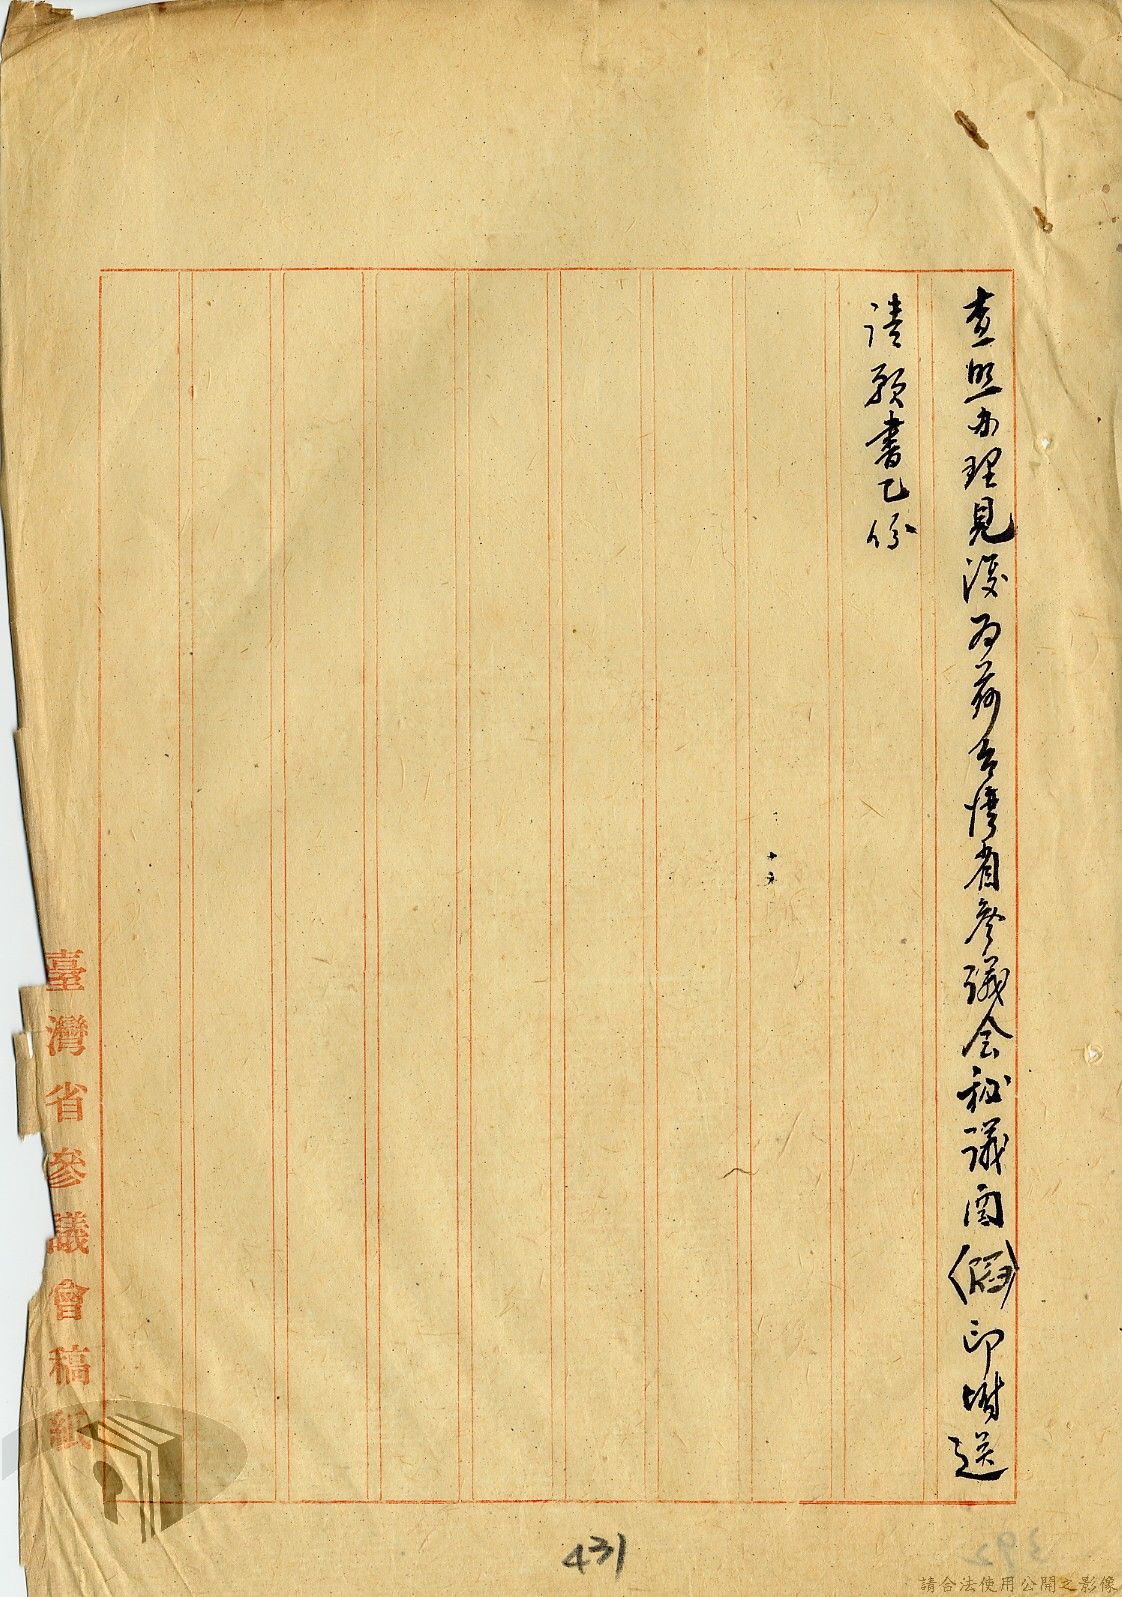 查照办理見復为荷台湾省参議会秘議
印附送
請願書乙份
臺灣省參議會稿紙
431
請合法使用公開之影像